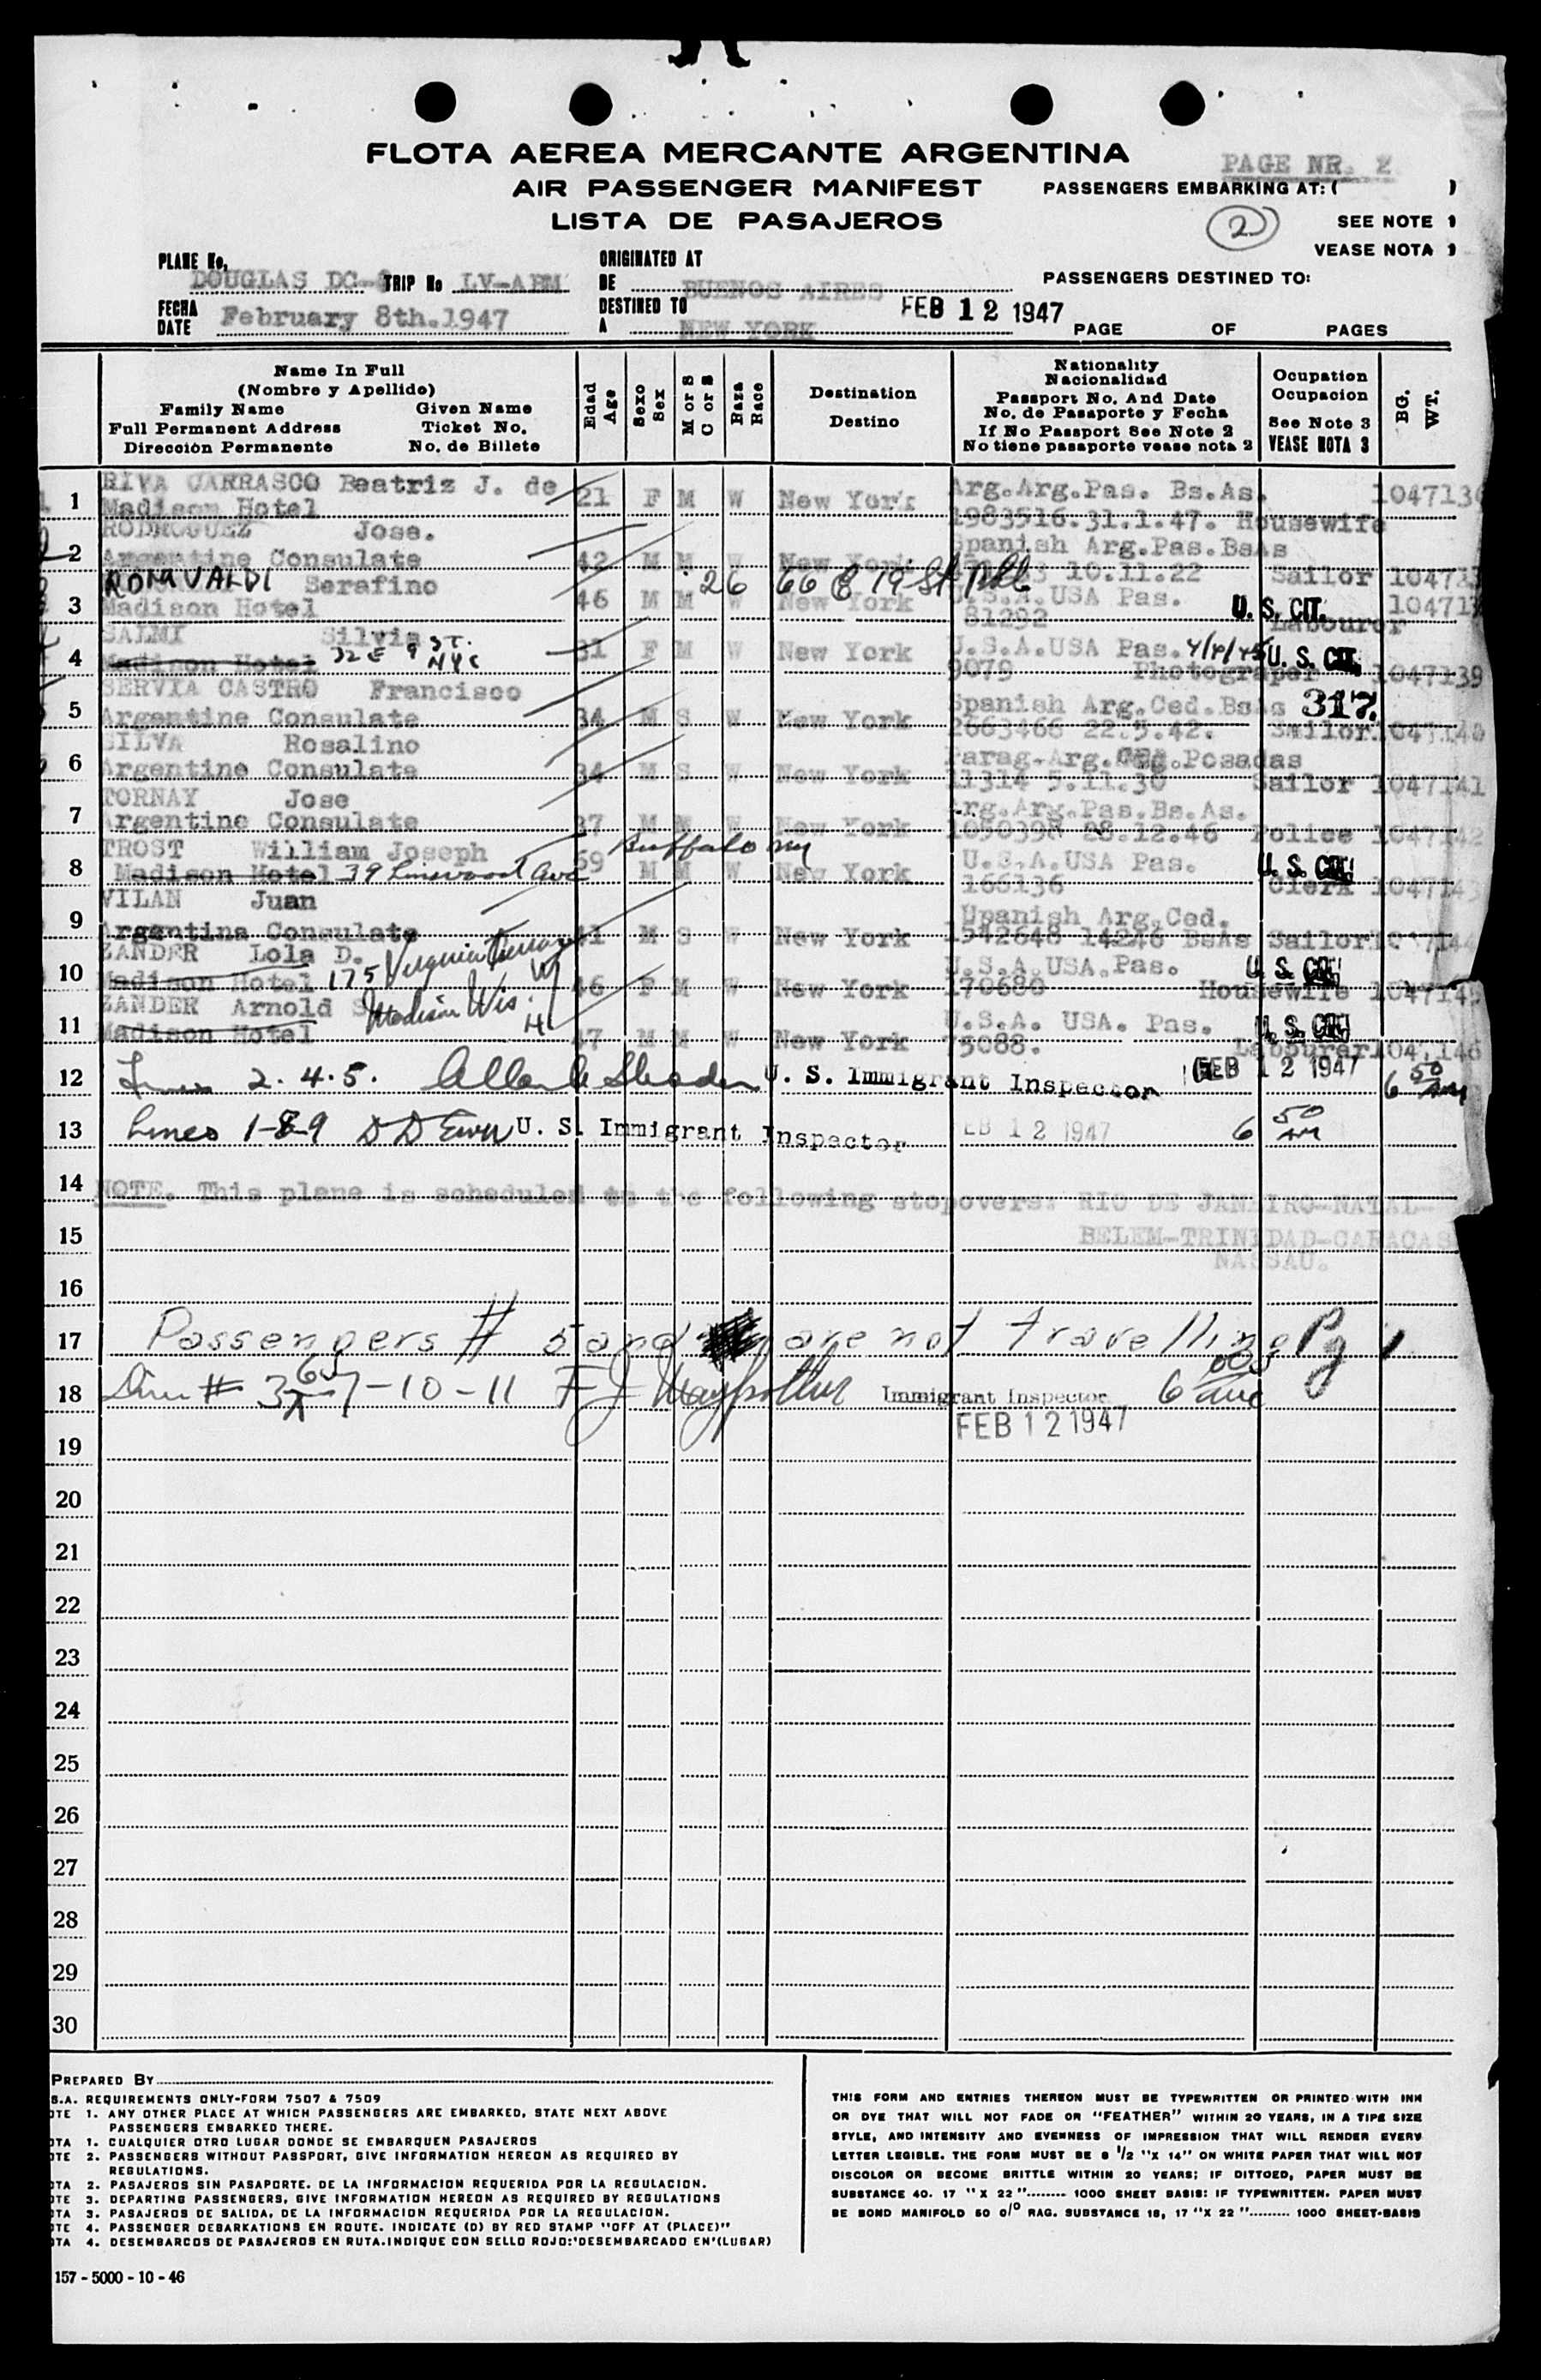 FLOTA AEREA MERCANTE ARGENTINA
PAGE NR. 2
AIR PASSENGER MANIFEST
PASSENGERS EMBARKING AT: ( )
LISTA DE PASAJEROS
2
SEE NOTE 1
VEASE NOTA 1
PLANE No.
DOUGLAS DC- TRIP No LV-ABM
ORIGINATED AT
DE BUENOS AIRES
PASSENGERS DESTINED TO:
FECHA
DATE February 8th.1947
DESTINED TO
A NEW YORK
FEB 12 1947
PAGE OF PAGES
Name In Full
(Nombre y Apellido)
Family Name Given Name
Full Permanent Address Ticket No.
Dirección Permanente No. de Billete
Edad
Age
Sexo
Sex
M or S
C or S
Raza
Race
Destination
Destino
Nationality
Nacionalidad
Passport No. And Date
No. de Pasaporte y Fecha
If No Passport See Note 2
No tiene pasaporte vease nota 2
Ocupation
Ocupacion
See Note 3
VEASE NOTA 3
BG.
WT.
RIVA CARRASCO Beatriz J. de
1 Madison Hotel 21 F M W New York Arg.Arg.Pas. Bs.As. 104713
1983516.31.1.47. Housewife
RODRIGUEZ Jose.
2 Argentine Consulate 42 M M W New York Spanish Arg.Pas.BsAs
10.11.22 Sailor 10471
ROMUVALDI Serafino 26 66 E 19 St
3 Madison Hotel 46 M M W New York U.S.A.USA Pas. U.S. CIT. 10471
81292 Labourer
SALMI Silvia 32 E 9 ST. NYC
4 Madison Hotel 31 F M W New York U.S.A.USA Pas. 4/4/45 U.S. CIT.
9079 Photograper 1047139
SERVIA CASTRO Francisco
5 Argentine Consulate 34 M S W New York Spanish Arg.Ced.BsAs 317.
2663466 22.5.42. Sailor 1047140
SILVA Rosalino
6 Argentine Consulate 34 M S W New York Parag-Arg.Ced.Posadas
11314 5.11.30 Sailor 1047141
TORNAY Jose
7 Argentine Consulate 37 M M W New York Arg.Arg.Pas.Bs.As.
1050398 28.12.46 Police 1047142
TROST William Joseph Buffalo NY
8 Madison Hotel 39 Linwood Ave 59 M M W New York U.S.A.USA Pas. U.S. CIT.
166136 Clerk 1047143
VILAN Juan
9 Argentina Consulate 41 M S W New York Upanish Arg.Ced.
1542648 14246 BsAs Sailor 1047144
ZANDER Lola D.
10 Madison Hotel 175 Virginia Terrace 46 F M W New York U.S.A.USA.Pas. U.S. CIT.
170680 Housewife 1047145
ZANDER Arnold S Madison Wis.
11 Madison Hotel 47 M M W New York U.S.A. USA. Pas. U.S. CIT.
75088. Labourer 1047146
12 Lines 2.4.5. U. S. Immigrant Inspector FEB 12 1947 6 50 AM
13 Lines 1-8-9 U. S. Immigrant Inspector FEB 12 1947 6 50 AM
14 NOTE. This plane is scheduled to the following stopovers: RIO DE JANEIRO-NATAL-
15 BELEM-TRINIDAD-CARACAS
NASSAU.
16
17 Passengers # 5 and are not travelling Pg 1
18 Line # 3 6 7-10-11 Immigrant Inspector 6
FEB 12 1947
19
20
21
22
23
24
25
26
27
28
29
30
PREPARED BY
S.A. REQUIREMENTS ONLY-FORM 7507 & 7509
OTE 1. ANY OTHER PLACE AT WHICH PASSENGERS ARE EMBARKED, STATE NEXT ABOVE
PASSENGERS EMBARKED THERE.
OTA 1. CUALQUIER OTRO LUGAR DONDE SE EMBARQUEN PASAJEROS
OTE 2. PASSENGERS WITHOUT PASSPORT, GIVE INFORMATION HEREON AS REQUIRED BY
REGULATIONS.
OTA 2. PASAJEROS SIN PASAPORTE. DE LA INFORMACION REQUERIDA POR LA REGULACION.
OTE 3. DEPARTING PASSENGERS, GIVE INFORMATION HEREON AS REQUIRED BY REGULATIONS
OTA 3. PASAJEROS DE SALIDA, DE LA INFORMACION REQUERIDA POR LA REGULACION.
OTE 4. PASSENGER DEBARKATIONS EN ROUTE. INDICATE (D) BY RED STAMP "OFF AT (PLACE)"
OTA 4. DESEMBARCOS DE PASAJEROS EN RUTA.INDIQUE CON SELLO ROJO:'DESEMBARCADO EN'(LUGAR)
THIS FORM AND ENTRIES THEREON MUST BE TYPEWRITTEN OR PRINTED WITH INK
OR DYE THAT WILL NOT FADE OR "FEATHER" WITHIN 20 YEARS, IN A TIPE SIZE
STYLE, AND INTENSITY AND EVENNESS OF IMPRESSION THAT WILL RENDER EVERY
LETTER LEGIBLE. THE FORM MUST BE 8 1/2 "X 14" ON WHITE PAPER THAT WILL NOT
DISCOLOR OR BECOME BRITTLE WITHIN 20 YEARS; IF DITTOED, PAPER MUST BE
SUBSTANCE 40. 17 "X 22"........ 1000 SHEET BASIS: IF TYPEWRITTEN. PAPER MUST
BE BOND MANIFOLD 50 0/0 RAG. SUBSTANCE 16, 17 "X 22"......... 1000 SHEET-BASIS
157 - 5000 - 10 - 46